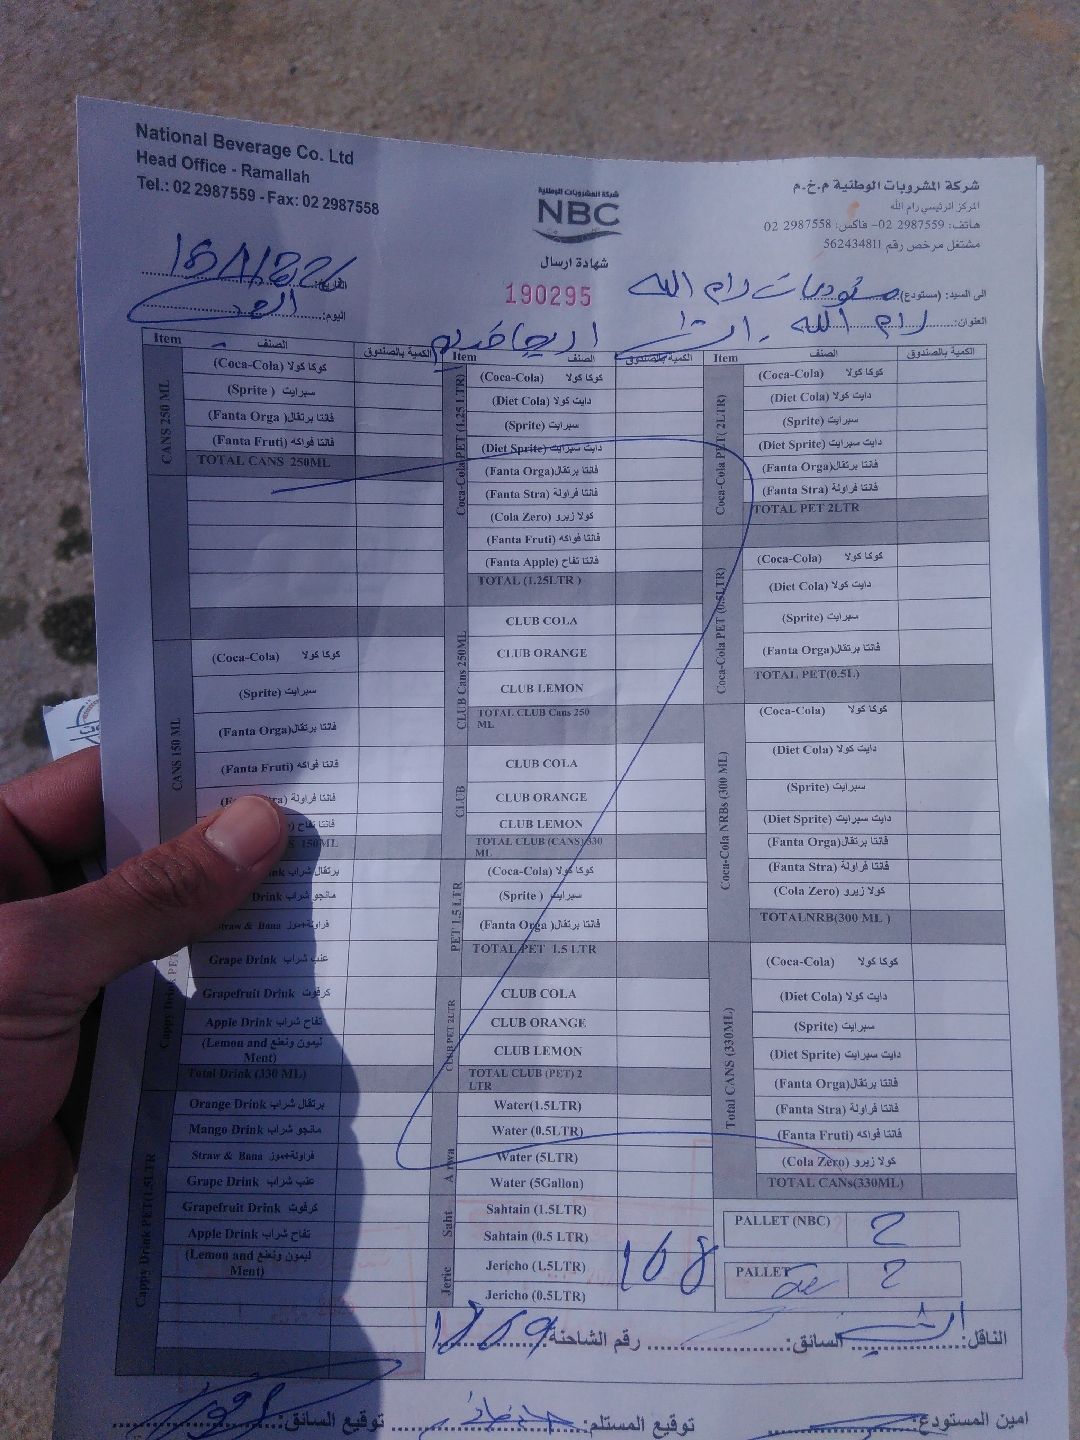 National Beverage Co. Ltd
Head Office - Ramallah
Tel.: 02 2987559 - Fax: 02 2987558
شركة المشروبات الوطنية
NBC
شهادة ارسال
190295
شركة المشروبات الوطنية م.خ.م
المركز الرئيسي رام الله
هاتف: 2987559 02- فاكس: 2987558 02
مشتغل مرخص رقم 562434811
التاريخ:
اليوم:
الى السيد: (مستودع) مستودعات رام الله
العنوان: رام الله
اريحا
Item الصنف الكمية بالصندوق
CANS 250 ML
(Coca-Cola) كوكا كولا
(Sprite ) سبرايت
(Fanta Orga )فانتا برتقال
(Fanta Fruti) فانتا فواكه
TOTAL CANS 250ML
CANS 150 ML
(Coca-Cola) كوكا كولا
(Sprite) سبرايت
(Fanta Orga)فانتا برتقال
(Fanta Fruti) فانتا فواكه
فانتا فراولة
تفاح
150ML
برتقال شراب
Drink مانجو شراب
Straw & Bana فراولة+موز
Grape Drink عنب شراب
Grapefruit Drink كرفوت
Apple Drink تفاح شراب
(Lemon and ليمون ونعنع
Ment)
Total Drink (330 ML)
Cappy Drink PET(1.5LTR
Orange Drink برتقال شراب
Mango Drink مانجو شراب
Straw & Bana فراولة+موز
Grape Drink عنب شراب
Grapefruit Drink كرفوت
Apple Drink تفاح شراب
(Lemon and ليمون ونعنع
Ment)
Item الصنف الكمية بالصندوق
Coca-Cola PET (1.25 LTR)
(Coca-Cola) كوكا كولا
(Diet Cola) دايت كولا
(Sprite) سبرايت
(Diet Sprite) دايت سبرايت
(Fanta Orga)فانتا برتقال
(Fanta Stra) فانتا فراولة
(Cola Zero) كولا زيرو
(Fanta Fruti) فانتا فواكه
(Fanta Apple) فانتا تفاح
TOTAL (1.25LTR )
CLUB Cans 250ML
CLUB COLA
CLUB ORANGE
CLUB LEMON
TOTAL CLUB Cans 250
ML
CLUB
CLUB COLA
CLUB ORANGE
CLUB LEMON
TOTAL CLUB (CANS) 330
ML
PET 1.5 LTR
(Coca-Cola) كوكا كولا
(Sprite ) سبرايت
(Fanta Orga )فانتا برتقال
TOTAL PET 1.5 LTR
CLUB PET 2LTR
CLUB COLA
CLUB ORANGE
CLUB LEMON
TOTAL CLUB (PET) 2
LTR
Arwa
Water(1.5LTR)
Water (0.5LTR)
Water (5LTR)
Water (5Gallon)
Saht
Sahtain (1.5LTR)
Sahtain (0.5 LTR)
Jeric
Jericho (1.5LTR) 168
Jericho (0.5LTR)
Item الصنف الكمية بالصندوق
Coca-Cola PET( 2LTR)
(Coca-Cola) كوكا كولا
(Diet Cola) دايت كولا
(Sprite) سبرايت
(Diet Sprite) دايت سبرايت
(Fanta Orga)فانتا برتقال
(Fanta Stra) فانتا فراولة
TOTAL PET 2LTR
Coca-Cola PET (0.5LTR)
(Coca-Cola) كوكا كولا
(Diet Cola) دايت كولا
(Sprite) سبرايت
(Fanta Orga)فانتا برتقال
TOTAL PET(0.5L)
Coca-Cola NRBs (300 ML)
(Coca-Cola) كوكا كولا
(Diet Cola) دايت كولا
(Sprite) سبرايت
(Diet Sprite) دايت سبرايت
(Fanta Orga)فانتا برتقال
(Fanta Stra) فانتا فراولة
(Cola Zero) كولا زيرو
TOTALNRB(300 ML )
Total CANS (330ML)
(Coca-Cola) كوكا كولا
(Diet Cola) دايت كولا
(Sprite) سبرايت
(Diet Sprite) دايت سبرايت
(Fanta Orga)فانتا برتقال
(Fanta Stra) فانتا فراولة
(Fanta Fruti) فانتا فواكه
(Cola Zero) كولا زيرو
TOTAL CANs(330ML)
PALLET (NBC) 2
PALLET 2
الناقل: السائق: رقم الشاحنة:
امين المستودع: توقيع المستلم: توقيع السائق: